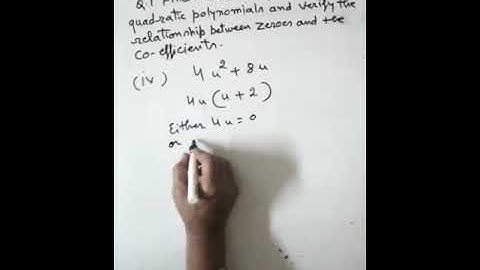 Q.1
quadratic polynomials and verify the
relationship between zeroes and the
Co-efficients.
(iv) 4u² + 8u
4u(u+2)
Either 4u = 0
or